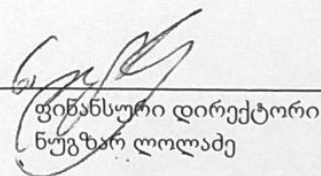 ფინანსური დირექტორი
ნუგზარ ლოლაძე